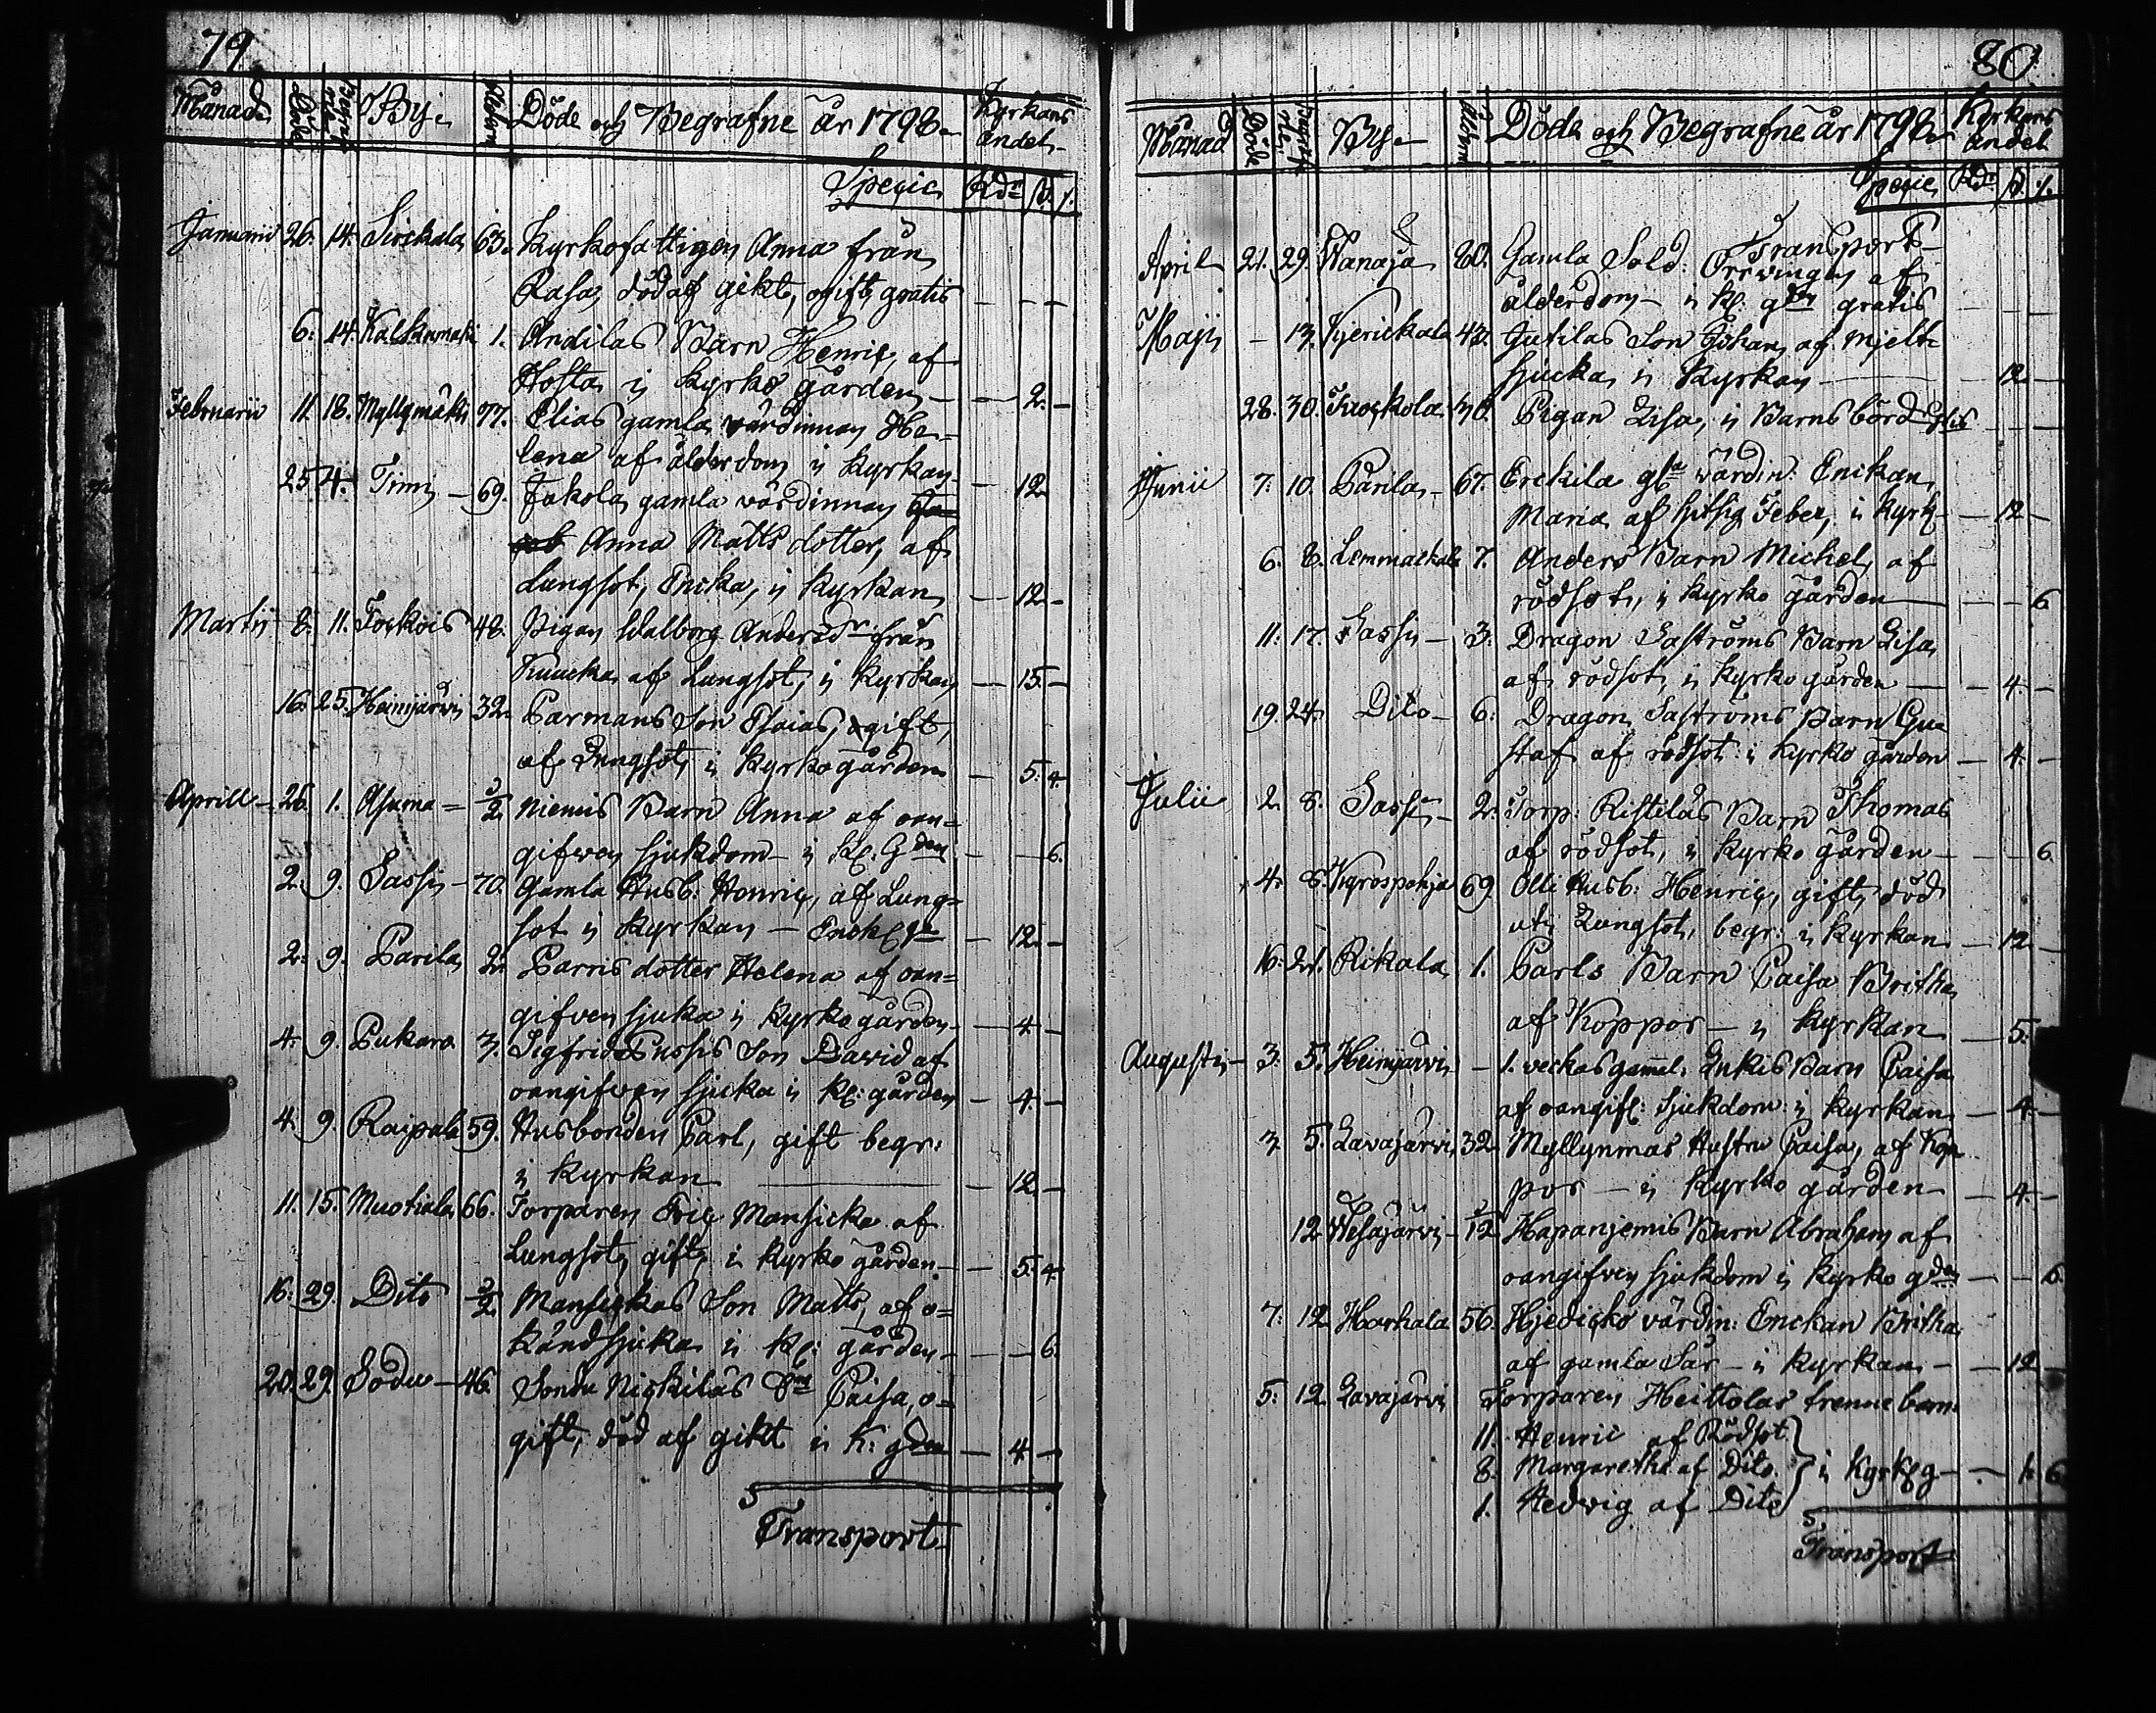 79
Månad Döde Begrafne By Ålder Döde och Begrafne år 1798 Kyrkans andel
Specie Rdr ß. r.
Januarii 26. 14. Sirckala 63. Kyrkofattigen Anna från
Rasa, död af gikt, ogift, gratis — — —
6. 14. Kalkunmäki 1. Andilas Barn Henric, af
Hosta i Kyrko gården — 2. —
Februarii 11. 18. Myllymäki 77. Elias gamla värdinnan He-
lena af ålderdom i Kyrkan — 12
25. 4. Timi — 69. Jakola gamla värdinnan
Anna Matts dotter, af
Lungsot, Encka, i Kyrkan — 12 —
Martii 8. 11. 48. Pigan Walborg Andersdr från
af Lungsot, i Kyrkan — 15 —
16. 25. Heinijärvi 32. Parmans Son Esaias, ogift,
af Lungsot, i Kyrkogården — 5. 4.
Aprill — 26. 1. Asuma = ½ Niemis Barn Anna af oan=
gifven sjukdom — i K: Gden — — 6.
2. 9. Sassi — 70. Gamla Husb: Henric, af Lung=
sot i Kyrkan — — 12. —
2. 9. Parila 2. Parris dotter Helena af oan=
gifven sjuka i Kyrko gården — 4. —
4. 9. Pukara 3. Sigfrid Pussis Son David af
oangifven sjucka i K: gården — 4. —
4. 9. Raipala 59. Husbonden Carl, gift begr:
i Kyrkan — 12 —
11. 15. Muotiala 66. Torparen Eric Mansicka af
Lungsot, gift, i Kyrko gården — 5. 4.
16. 29. Dito ½ Mansickas Son Matts, af o=
känd sjuka i K: gården — — 6.
20. 29. Sodu — 46. Niskilas Caisa, o=
gift, död af gikt i K: gden — 4. —
Transport
80
Månad Döde Begrafne By Ålder Döde och Begrafne år 1798 Kyrkans andel
Specie Rdr ß. r.
Transport
April 21. 29. Wanaja 80. Gamla Sold: Orrvingen af
ålderdom — i K: gden gratis — — —
Maji — 13. Kjerickala 43. Gutilas Son Johan af mjelt-
sjucka i Kyrkan — 12 —
28. 30. 30. Pigan Lisa, i Barnsbörd gtis — —
Junii 7. 10. Parila — 67. Erckila gla värdin: Enckan
Maria af hitsig Feber, i Kyrk: — 12 —
6. 8. 7. Anders Barn Michel, af
rödsot, i Kyrko gården — — 6
11. 17. Sassi — 3. Dragon Saströms Barn Lisa
af rödsot, i Kyrko gården — 4. —
19. 24. Dito — 6. Dragon Saströms Barn Gu
staf af rödsot i Kyrko gården — 4. —
Julii 2. 8. Sassi — 2. Torp: Ristilas Barn Thomas
af rödsot, i Kyrko gården — — 6.
4. 8. Kyrospohja 69. Olli Husb: Henric, gift, död
utj Lungsot, begr: i Kyrkan — 12 —
16. 21. Rikala 1. Carls Barn Caisa Britha
af Koppor — i Kyrkan — 5.
Augusti — 3. 5. Heinijärvi — 1. veckas gamal: Enkis Barn Caisa
af oangif: Sjukdom: i Kyrkan — 4. —
3. 5. Lavajärvi 32. Myllynmas Hustru Caisa, af Kop
por — i Kyrko gården — 4. —
12. Wesajärvi — Hapanjemis Barn Abraham af
oangifven sjukdom i Kyrko gden — — 6.
7. 12. Harhala 56. Hjedicko värdin: Enckan Britha
af gamla Sår — i Kyrkan — — 12 —
5. 12. Lavajärvi Torparen Heittolas trenne barn
11. Henric af Rödsot
8. Margaretha af Dito } i Kyrk: g — — 1. 6
1. Hedvig af Dito
Transport